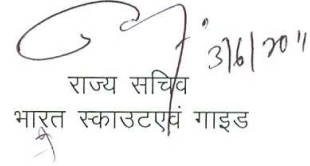 3/6/2011
राज्य सचिव
भारत स्काउटएवं गाइड